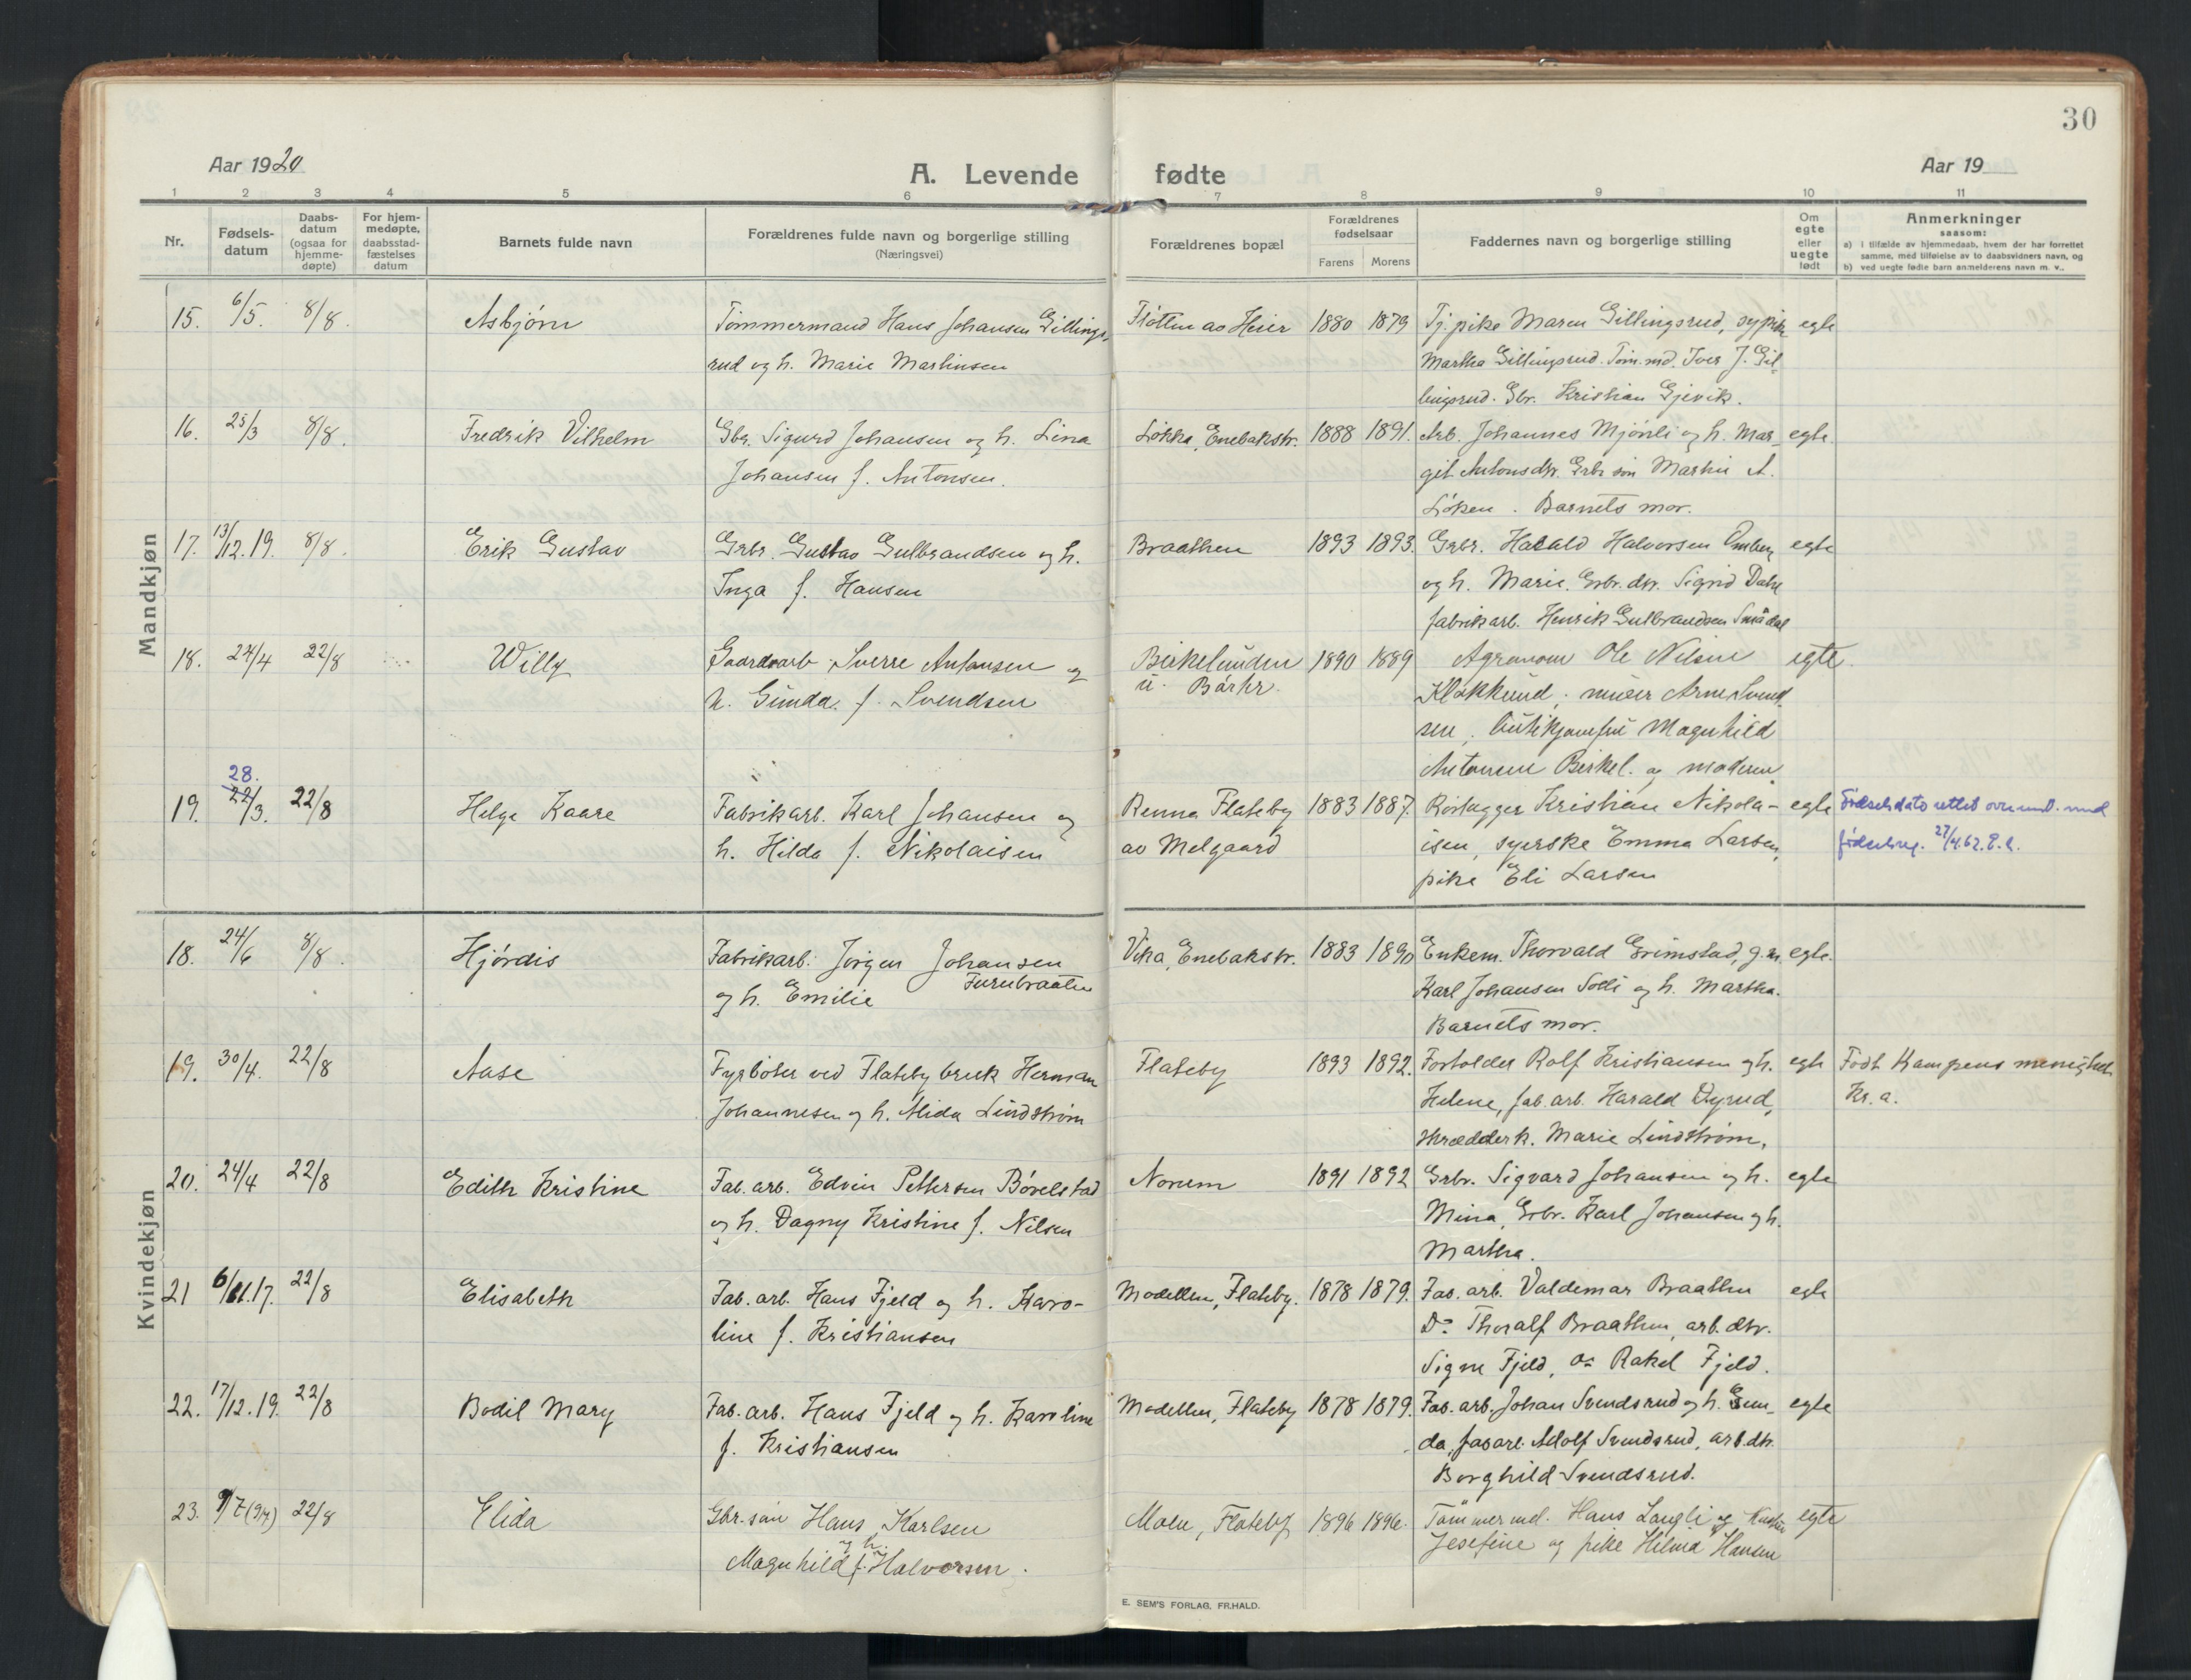 30
Aar 1920
A. Levende fødte
Aar 19
1 2 3 4 5 6 7 8 9 10 11
Nr.
Fødsels-
datum
Daabs-
datum
(ogsaa for
hjemme-
døpte)
For hjem-
medøpte,
daabsstad-
fæstelses
datum
Barnets fulde navn
Forældrenes fulde navn og borgerlige stilling
(Næringsvei)
Forældrenes bopæl
Forældrenes
fødselsaar
Farens Morens
Faddernes navn og borgerlige stilling
Om
egte
eller
uegte
født
Anmerkninger
saasom:
a) i tilfælde av hjemmedaab, hvem der har forrettet
samme, med tilføielse av to daabsvidners navn, og
b) ved uegte fødte barn anmelderens navn m. v..
Mandkjøn
15. 6/5. 8/8. Asbjørn Tømmermand Hans Johansen Gillings- Fløtten av Heier 1880 1879 Tj. pike Maren Gillingsrud, sypike egte
rud og h. Marie Martinsen Martha Gillingsrud. Tøm.md. Iver J. Gil-
lingsrud. Gbr. Kristian Gjevik.
16. 25/3 8/8. Fredrik Vilhelm Gbr. Sigurd Johansen og h. Lina Løkka, Enebakstr. 1888 1891. Arb. Johannes Mjønli og h. Mar- egte.
Johansen f. Antonsen. git Antonsdtr. Grbr søn Martin A.
Løken. Barnets mor.
17. 13/12.19. 8/8. Erik Gustav Grbr. Gustav Gulbrandsen og h. Braathen 1893 1893. Grbr. Harald Halvorsen Omberg egte
Inga f. Hansen og h. Marie. Grbr. dtr. Sigrid Dahl
fabrikarb. Henrik Gulbrandsen Smådal
18. 24/4 22/8 Willy Gaardsarb. Sverre Antonsen og Birkelunden 1890 1889 Agronom Ole Nilsen egte.
h. Gunda. f. Svendsen u. Børter. Klokkerud, murer Arne Svend-
sen, butikjomfru Magnhild
Antonsen Birkel. og moderen
28.
19. 22/3. 22/8 Helge Kaare Fabrikarb. Karl Johansen og Renna Flateby 1883 1887. Rørlægger Kristian Nikola- egte Fødselsdato rettet overensst. med
h. Hilda f. Nikolaisen av Melgaard isen, syerske Emma Larsen, fødselsreg. 27/4.62. E. L.
pike Eli Larsen
Kvindekjøn
18. 24/6 8/8. Hjørdis Fabrikarb. Jørgen Johansen Vika, Enebakstr. 1883 1890 Enkem. Thorvald Grimstad, g.m. egte.
Furubraaten
og h. Emilie Karl Johansen Solli og h. Martha.
Barnets mor.
19. 30/4. 22/8 Aase Fyrbøter ved Flateby bruk Herman Flateby 1893 1892. Forvolder Rolf Kristiansen og h. egte Født Kampens menighet
Johannesen og h. Alida Lindstrøm Helene, fab. arb. Harald Dyrud, Kr.a.
skrædderk. Marie Lindstrøm,
20. 24/4 22/8 Edith Kristine Fab. arb. Edvin Pettersen Børelstad Norum 1891 1892 Grbr. Sigvard Johansen og h. egte
og h. Dagny Kristine f. Nilsen Mina, Grbr. Karl Johansen og h.
Martha.
21 6/11.17. 22/8 Elisabeth Fab. arb. Hans Fjeld og h. Karo- Modellen, Flateby. 1878 1879. Fab. arb. Valdemar Braathen egte
line f. Kristiansen Do Thoralf Braathen, arb. dtr.
Signe Fjeld, do Rakel Fjeld.
22. 17/12.19. 22/8 Bodil Mary Fab. arb. Hans Fjeld og h. Karoline Modellen, Flateby 1878 1879. Fab. arb. Johan Svendsrud og h. Gun- egte
f. Kristiansen da, fab arb. Adolf Svendsrud, arb. dtr.
Borghild Svendsrud.
23. 9/7 (9/7) 22/8 Elida Gbr. søn Hans Karlsen Moen, Flateby 1896 1896. Tømmermd. Hans Langli og Hustru egte
og h.
Magnhild f. Halvorsen. Josefine og pike Hilma Hansen
E. SEM'S FORLAG, FR.HALD.